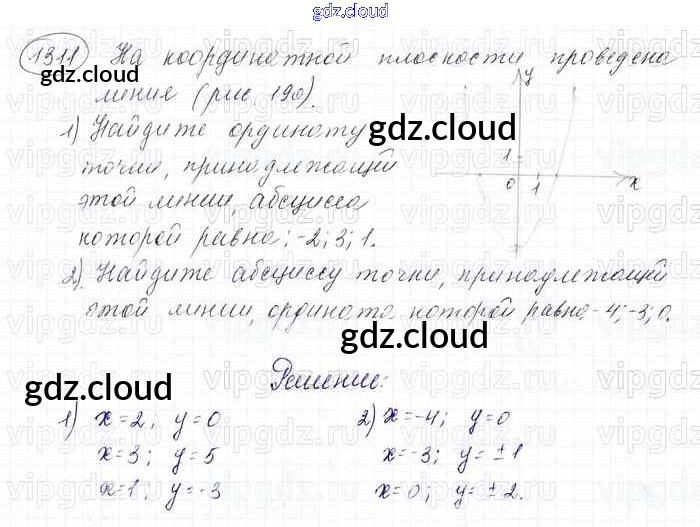 gdz.cloud
1311 На координатной плоскости проведена
gdz.cloud
линия (рис 190).
1) Найдите ординату
gdz.cloud
точки, принадлежащей
этой линии, абсцисса
которой равна: -2; 3; 1.
2). Найдите абсциссу точки, принадлежащей
этой линии, ордината которой равна -4; -3; 0.
gdz.cloud
Решение:
gdz.cloud
1) x=2; y=0 2) x=-4; y=0
x=3; y=5 x=-3; y=±1
x=1, y=-3 x=0; y=±2.
y
1
0 1 x